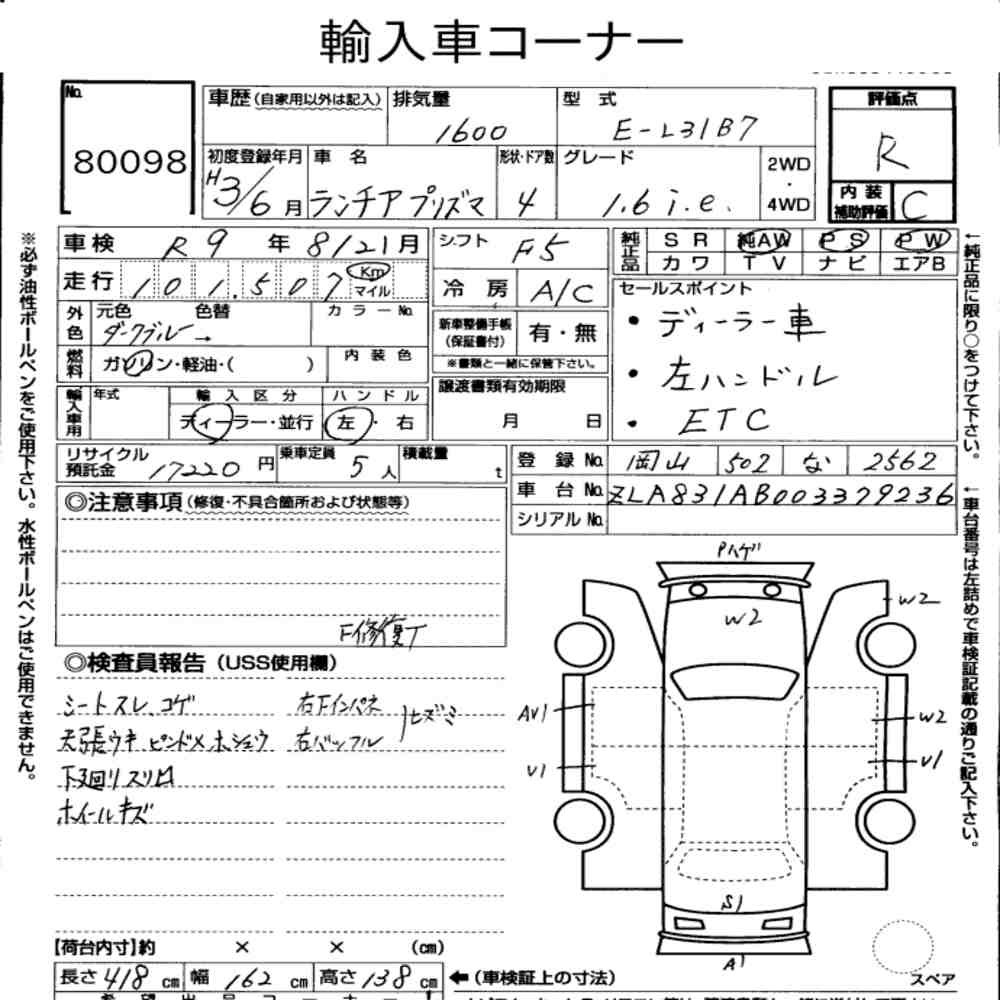 輸入車コーナー
No.
80098
車歴(自家用以外は記入)
排気量
1600
型 式
E-L31B7
評価点
R
内装
補助評価
C
初度登録年月
H3/6月
車 名
ランチア プリズマ
形状・ドア数
4
グレード
1.6 i.e.
2WD
・
4WD
車検 R9年 8/21月
走行 101,507 Km マイル
シフト F5
冷房 A/C
純正品
SR 純AW PS PW
カワ TV ナビ エアB
外色
元色 色替
ダークブルー →
カラーNo.
燃料
ガソリン・軽油・( )
内装色
新車整備手帳
(保証書付)
有・無
※書類と一緒に保管下さい。
輸入車用
年式
輸入区分
ディーラー・並行
ハンドル
左・右
譲渡書類有効期限
月 日
セールスポイント
・ディーラー車
・左ハンドル
・ETC
リサイクル
預託金 17220円
乗車定員 5人
積載量 t
登録No. 岡山 502 な 2562
車台No. ZLA831AB003379236
シリアルNo.
◎注意事項(修復・不具合箇所および状態等)
F修復丁
◎検査員報告(USS使用欄)
シートスレ、コゲ
天張ウキ ピンドメホシュウ
下廻リスリ凹
ホイールキズ
右下インパネ
右バッフル
ヒズミ
Pハゲ
W2
W2
AV1
W2
V1
V1
S1
A1
スペア
【荷台内寸】約 × × (cm)
長さ 418 cm 幅 162 cm 高さ 138 cm
←(車検証上の寸法)
※必ず油性ボールペンをご使用下さい。水性ボールペンはご使用できません。
←純正品に限り○をつけて下さい。
←車台番号は左詰めで車検証記載の通りご記入下さい。